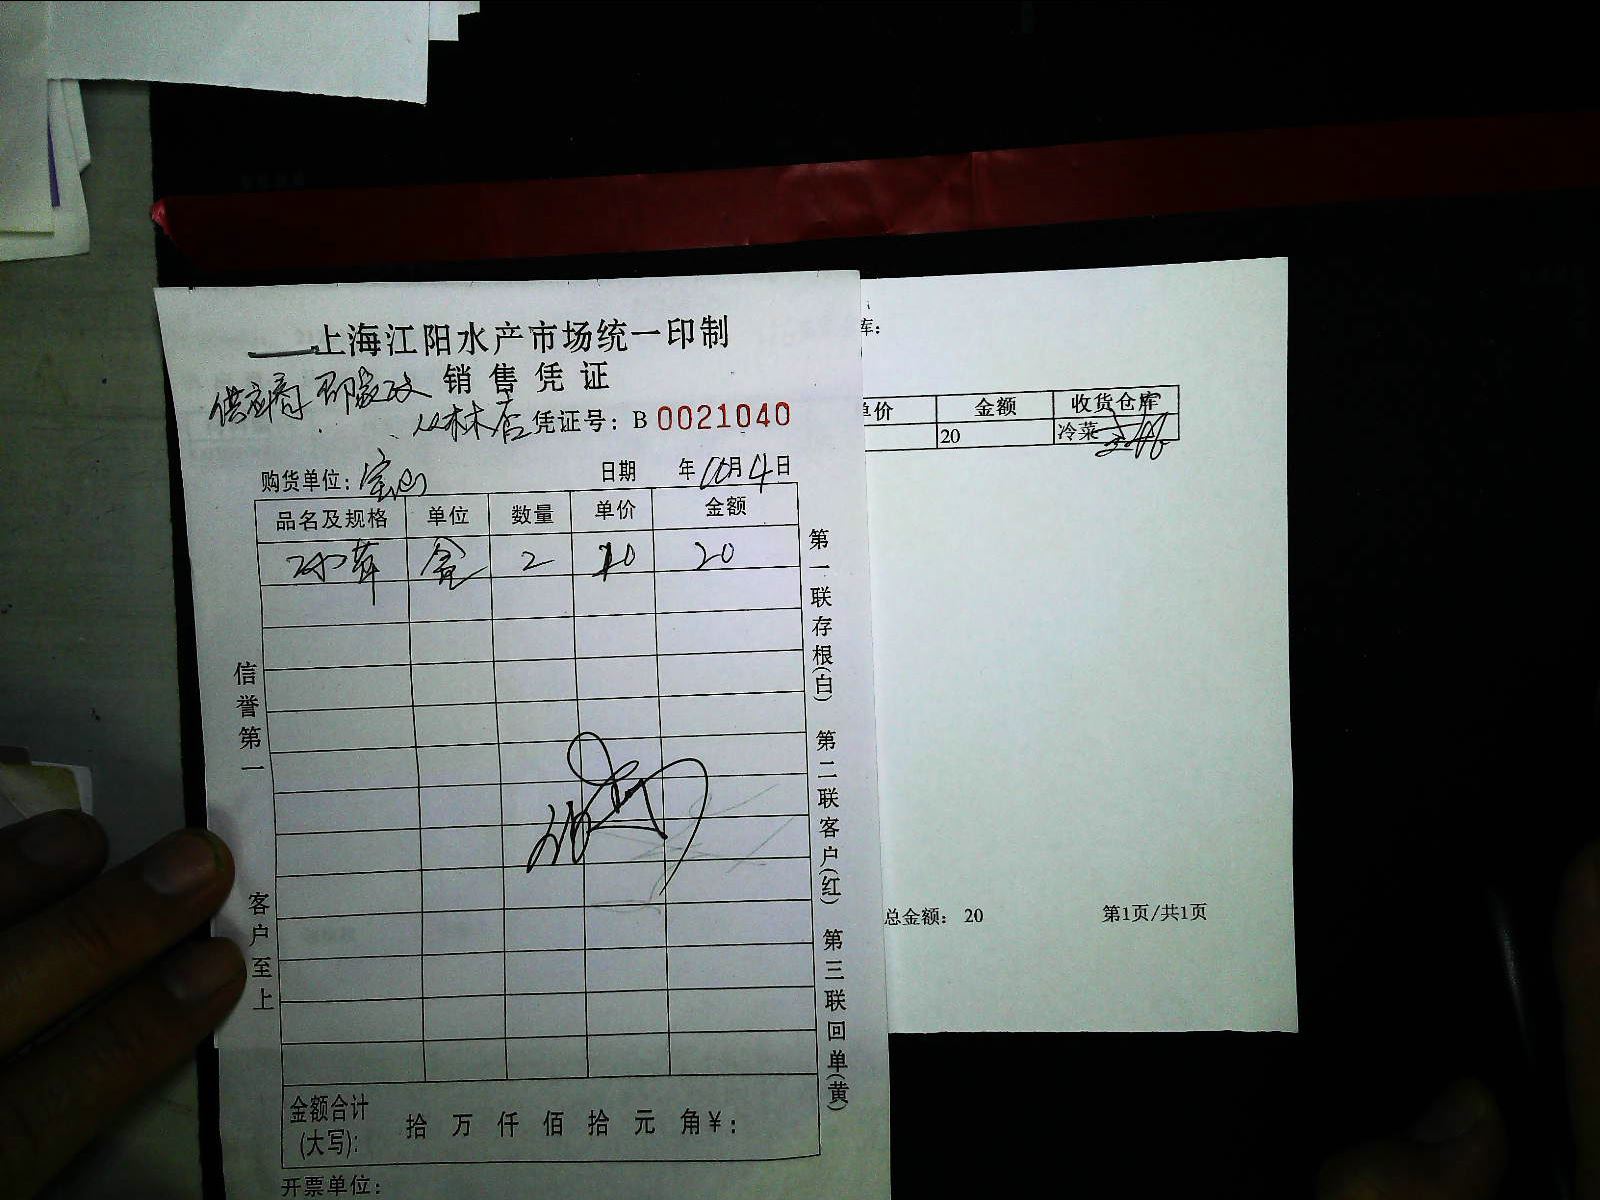 上海江阳水产市场统一印制
销售凭证
供应商
凭证号：B 0021040
购货单位：宝山 日期 年 10月4日
品名及规格 单位 数量 单价 金额
盒 2 10 20
信誉第一 客户至上
第一联存根(白) 第二联客户(红) 第三联回单(黄)
金额合计(大写)： 拾 万 仟 佰 拾 元 角 ¥：
开票单位：
库：
单价 金额 收货仓库
20 冷菜
总金额： 20 第1页/共1页